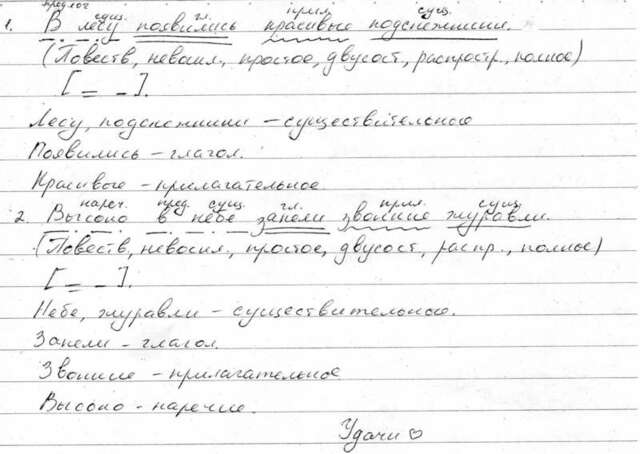 предлог сущ. гл. прил. сущ.
1. В лесу появились красивые подснежники.
(Повеств, невоскл., простое, двусост, распростр., полное)
[ = – ].
Лесу, подснежники – существительное
Появились – глагол.
Красивые – прилагательное.
нареч. пред. сущ. гл. прил. сущ.
2. Высоко в небе запели звонкие журавли.
(Повеств, невоскл., простое, двусост, распр., полное)
[ = – ].
Небе, журавли – существительное.
Запели – глагол.
Звонкие – прилагательное
Высоко – наречие.
Удачи ♡